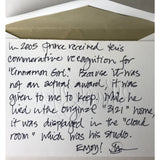 In 2005 Prince received this
commerative recognition for
"Cinnamon Girl." Because it was
not an actual award, it was
given to me to keep. While he
lived in the original "3121" home,
it was displayed in the "cloud
room" which was his studio.
Enjoy!